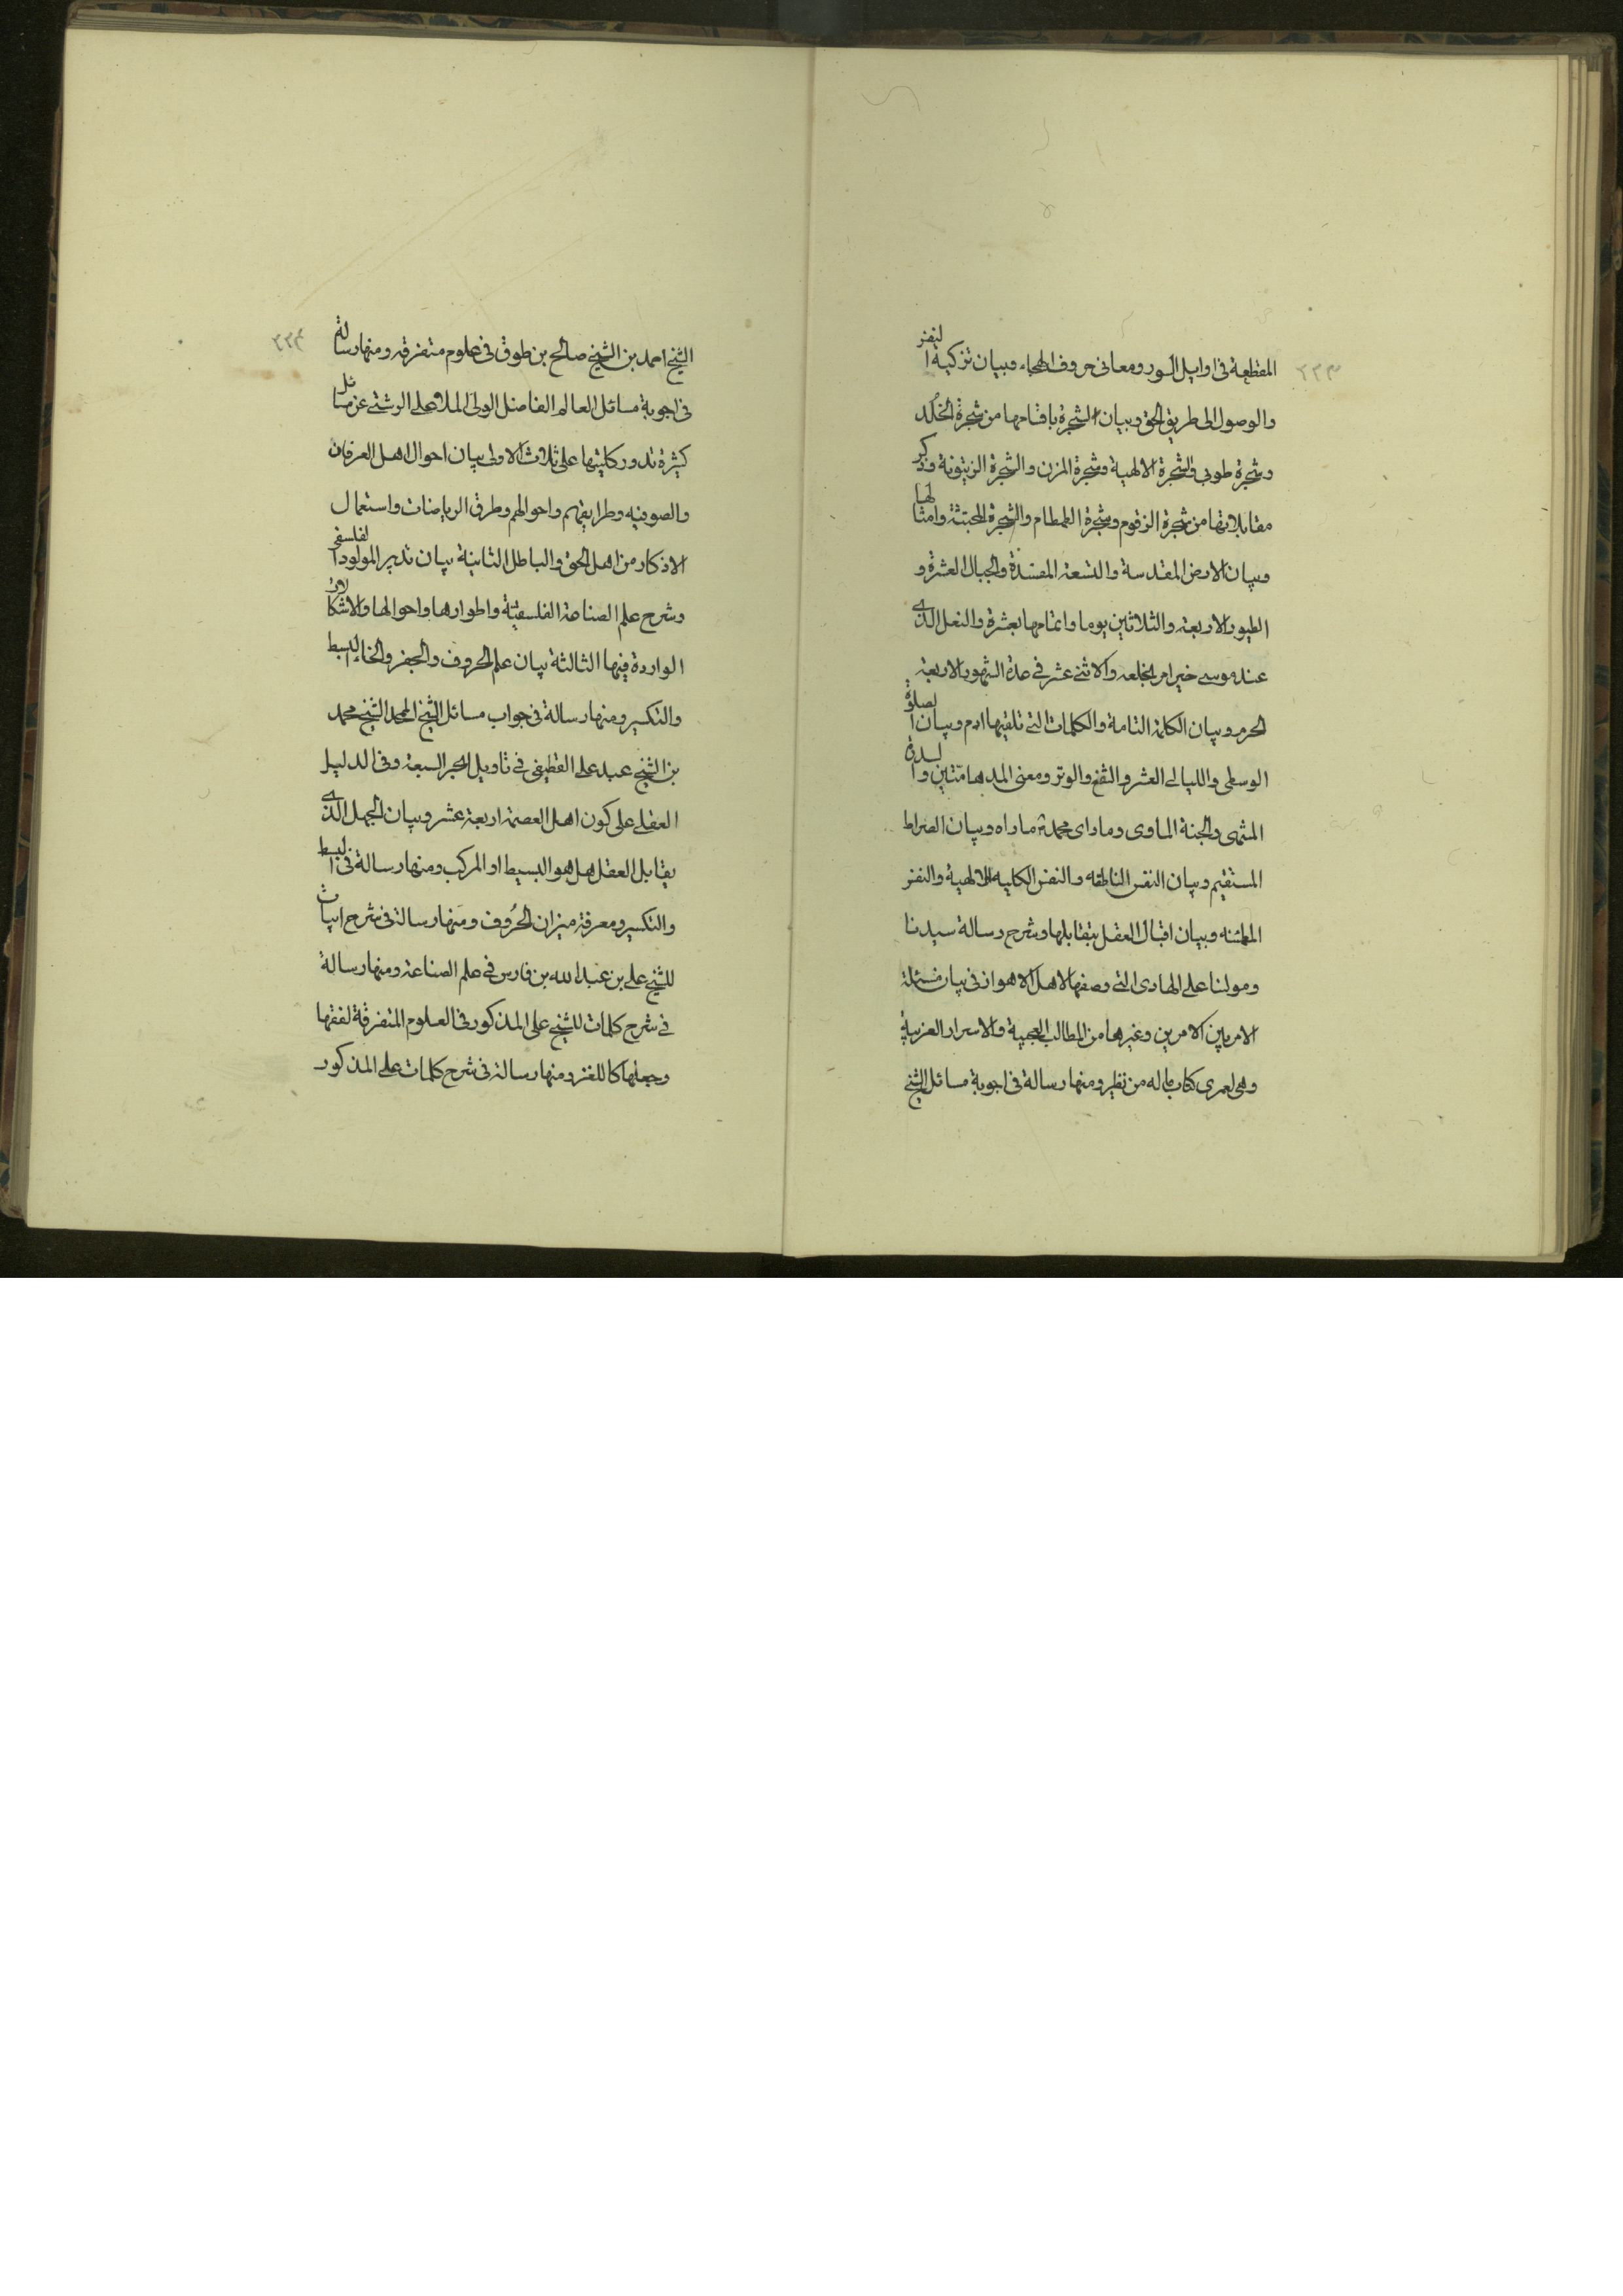 ٢٢٣
المقطعة فى اوايل السور ومعانى حروف الهجاء وبيان تزكية النفس
والوصول الى طريق الحق وبيان الشجرة باقسامها من شجرة الخُلد
وشجرة طوبى والشجرة الالهية وشجرة المزن والشجرة الزيتونة وذكر
مقابلاتها من شجرة الزقوم وشجرة الطمطام والشجرة المجتثة وامثالها
وبيان الارض المقدسة والتسعة المفسدة والجبال العشرة و
الطيور الاربعة والثلاثين يوما واتمامها بعشرة والنعل الذى
عند موسى حين امر بخلعه والاثنى عشر فى عدة الشهور الاربعة
الحرم وبيان الكلمة التامة والكلمات التى تلقيها ادم وبيان الصلوة
الوسطى والليالى العشر والشفع والوتر ومعنى المدهامتين والسدرة
المنتهى والجنة الماوى وما راى محمد ثم ما راه وبيان الصراط
المستقيم وبيان النفس الناطقه والنفس الكليه الالهية والنفس
المطمئنه وبيان اقبال العقل بتقابلها وشرح رسالة سيدنا
ومولنا على الهادى التى وصفها لاهل الاهواز فى بيان مسئلة
الامر بين الامرين وغيرها من المطالب العجيبة والاسرار الغريبة
وهى لعمرى كتاب ماله من نظير ومنها رسالة فى اجوبة مسائل الشيخ
٢٢٤
الشيخ احمد بن الشيخ صالح بن طوق فى علوم متفرقه ومنها رسالة
فى اجوبة مسائل العالم الفاضل الولى الملا على الرشتى عن مسائل
كثيرة تدور كليتها على ثلاث الاولى بيان احوال اهل العرفان
والصوفيه وطرايقهم واحوالهم وطرق الرياضات واستعمال
الاذكار من اهل الحق والباطل الثانية بيان تدبير المولود الفلسفى
وشرح علم الصناعة الفلسفية واطوارها واحوالها والاشكالات
الواردة فيها الثالثة بيان علم الحروف والجفر والبسط
والتكسير ومنها رسالة فى جواب مسائل الشيخ الممجد الشيخ محمد
بن الشيخ عبد على القطيفى فى تاويل البحر السبعة وفى الدليل
العقلى على كون اهل العصمة اربعة عشر وبيان الجهل الذى
يقابل العقل هل هو البسيط او المركب ومنها رسالة فى البسط
والتكسير ومعرفة ميزان الحُروف ومنها رسالة فى شرح ابيات
للشيخ على بن عبد الله بن فارس فى علم الصناعة ومنها رسالة
فى شرح كلمات للشيخ على المذكور فى العلوم المتفرقة لفقها
وجعلها كاللغز ومنها رسالة فى شرح كلمات على المذكور